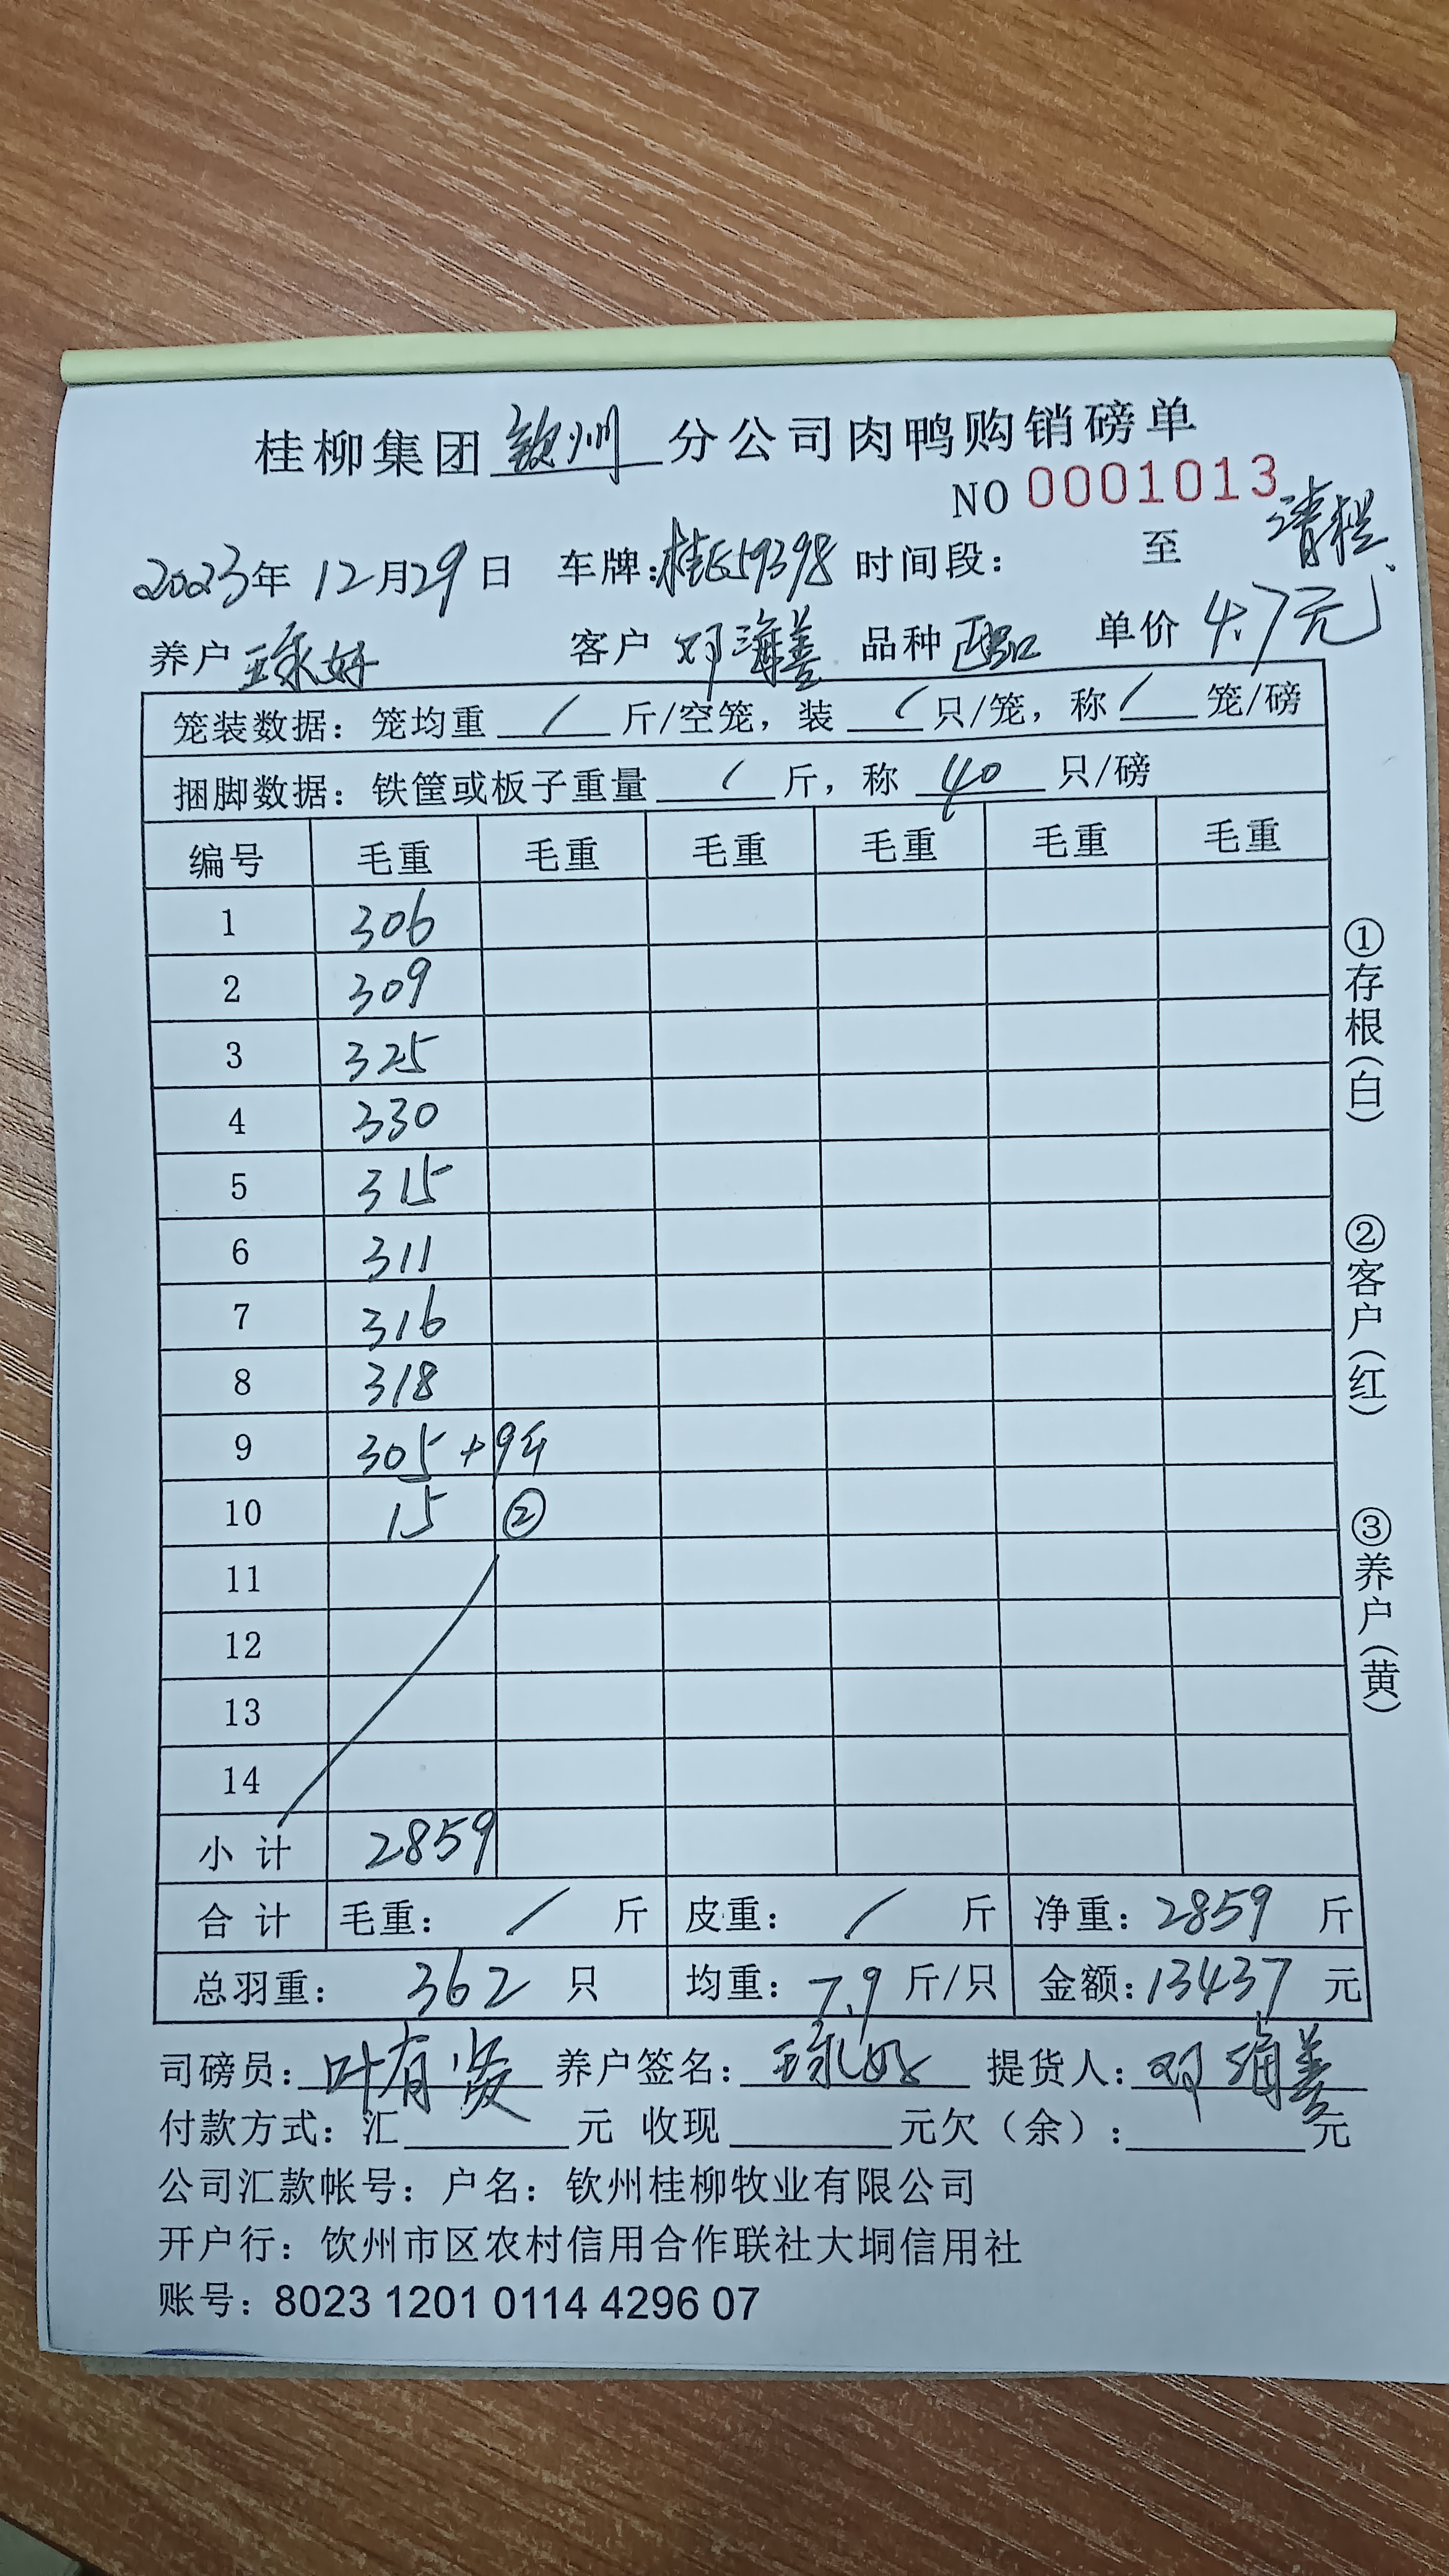 桂柳集团钦州分公司肉鸭购销磅单
NO 0001013
清栏
2023年 12月29日 车牌:桂E59398 时间段: 至
养户 王永好 客户 邓海善 品种 单价 4.7元
笼装数据: 笼均重 / 斤/空笼, 装 / 只/笼, 称 / 笼/磅
捆脚数据: 铁筐或板子重量 / 斤, 称 40 只/磅
编号 毛重 毛重 毛重 毛重 毛重 毛重
1 306
2 309
3 325
4 330
5 315
6 311
7 316
8 318
9 305 +9斤
10 15 ②
11
12
13
14
小计 2859
合计 毛重: / 斤 皮重: / 斤 净重: 2859 斤
总羽重: 362 只 均重: 7.9 斤/只 金额: 13437 元
司磅员: 叶有 养户签名: 王永好 提货人: 邓海善
付款方式: 汇 元 收现 元欠(余): 元
公司汇款帐号: 户名: 钦州桂柳牧业有限公司
开户行: 饮州市区农村信用合作联社大垌信用社
账号: 8023 1201 0114 4296 07
①存根(白)
②客户(红)
③养户(黄)